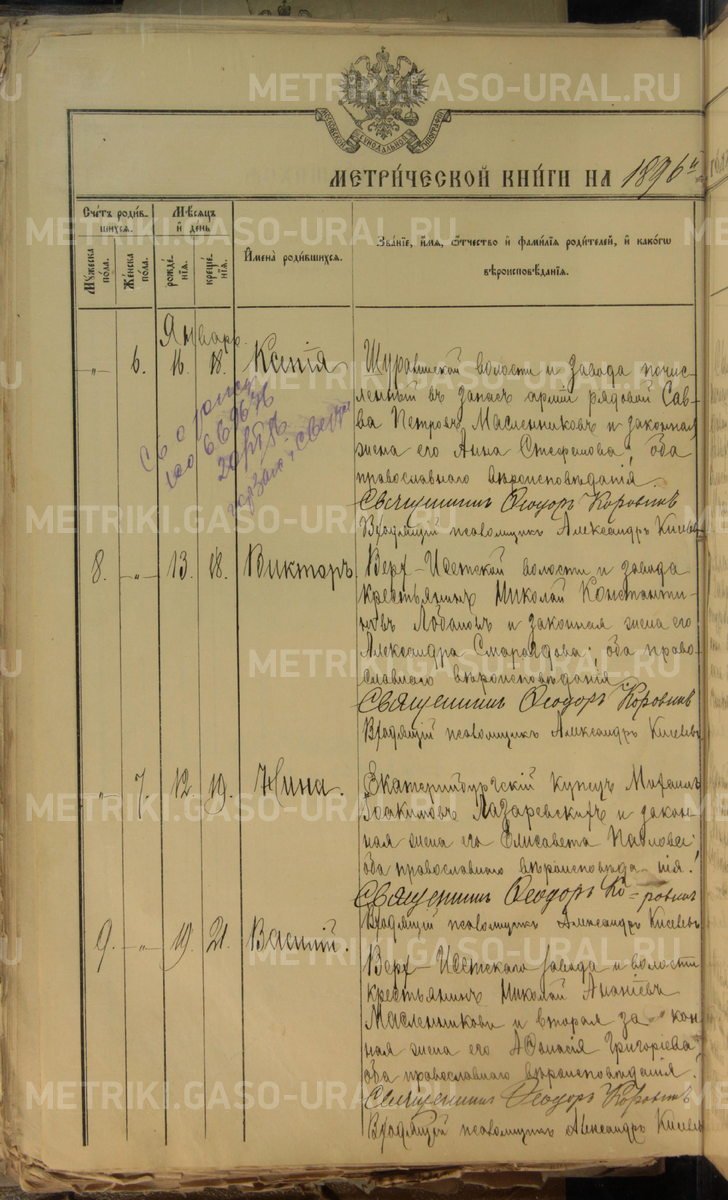 МОСКОВСКОЙ СѴНОДАЛЬНОЙ ТИПОГРАФІИ
МЕТРИ́ЧЕСКОЙ КНИ́ГИ НА 1896й
Сче́тъ роди́в-
шихся.
Мужеска
по́ла.
Же́нска
по́ла.
Мѣ́сяцъ
и҆ де́нь
рожде́-
нїя.
креще́-
нїя.
И҆мена̀ роди́вшихся.
Зва́нїе, и҆́мя, ѻ҆́тчество и҆ фами́лїя роди́телей, и҆ како́гѡ
вѣроисповѣ́данїя.
Январь.
-„- 6. 16. 18. Ксенія
Шуралинской волости и завода почис-
ленный въ запасъ арміи рядовой Сав-
ва Петровъ Масленниковъ и законная
жена его Анна Стефанова; оба
православнаго вѣроисповѣданія.
Священникъ Ѳеодоръ Коровинъ
псаломщикъ Александръ Киселевъ
8. -„- 13. 18. Викторъ
Верх-Исетской волости и завода
крестьянинъ Николай Константи-
новъ Лобановъ и законная жена его
Александра Смарагдова; оба право-
славнаго вѣроисповѣданія.
Священникъ Ѳеодоръ Коровинъ
псаломщикъ Александръ Киселевъ
-„- 7. 12. 19. Нина.
Екатеринбургскій купецъ Михаилъ
Іоакимовъ Лазаревскихъ и закон-
ная жена его Елисавета Павлова;
оба православнаго вѣроисповѣданія.
Священникъ Ѳеодоръ Ко-ровинъ
псаломщикъ Александръ Киселевъ
9. -„- 19. 21. Василій.
Верх-Исетскаго завода и волости
крестьянинъ Николай Ананіевъ
Масленниковъ и вторая закон
ная жена его Аѳанасія Григоріева
оба православнаго вѣроисповѣданія.
Священникъ Ѳеодоръ Коровинъ
псаломщикъ Александръ Киселевъ
METRIKI.GASO-URAL.RU